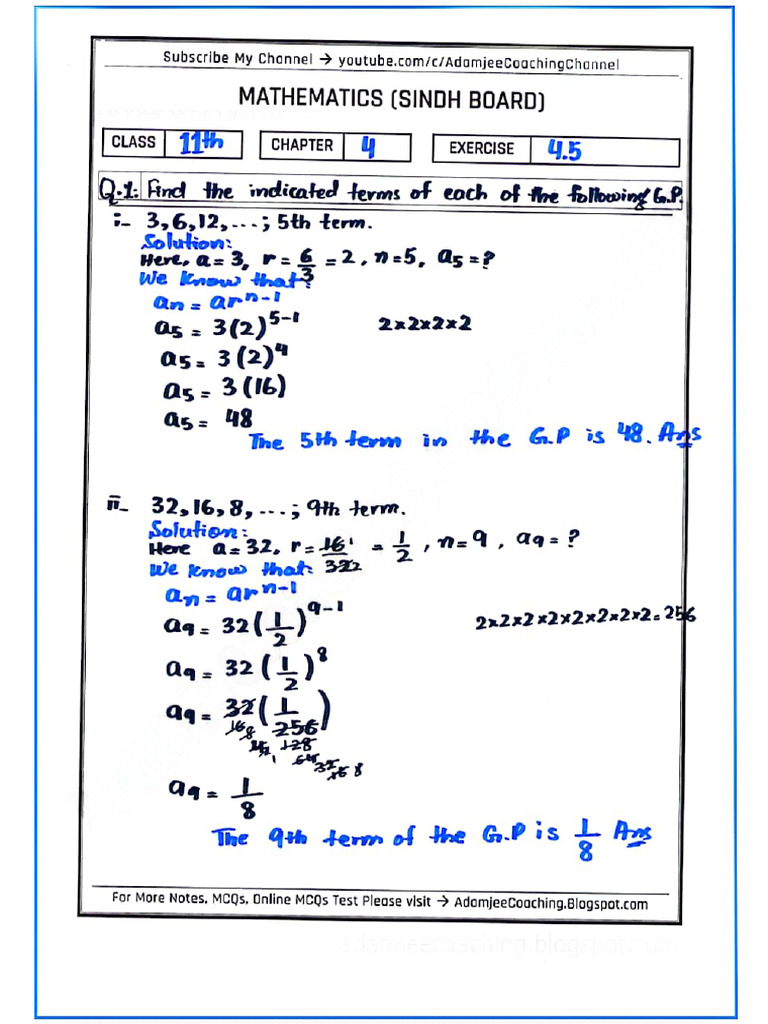 Subscribe My Channel → youtube.com/c/AdamjeeCoachingChannel
MATHEMATICS (SINDH BOARD)
CLASS 11th CHAPTER 4 EXERCISE 4.5
Q.1: Find the indicated terms of each of the following G.P.
i- 3, 6, 12, ...; 5th term.
Solution:
Here, a = 3, r = 6/3 = 2, n = 5, a5 = ?
We know that:
an = ar^n-1
a5 = 3(2)^5-1 2×2×2×2
a5 = 3(2)^4
a5 = 3(16)
a5 = 48
The 5th term in the G.P is 48. Ans
ii- 32, 16, 8, ...; 9th term.
Solution:
Here a = 32, r = 16/32 = 1/2, n = 9, a9 = ?
We know that:
an = ar^n-1
a9 = 32(1/2)^9-1 2×2×2×2×2×2×2×2=256
a9 = 32(1/2)^8
a9 = 32(1/256)
a9 = 1/8
The 9th term of the G.P is 1/8 Ans
For More Notes, MCQs, Online MCQs Test Please visit → AdamjeeCoaching.Blogspot.com
adamjeecoaching.blogspot.com